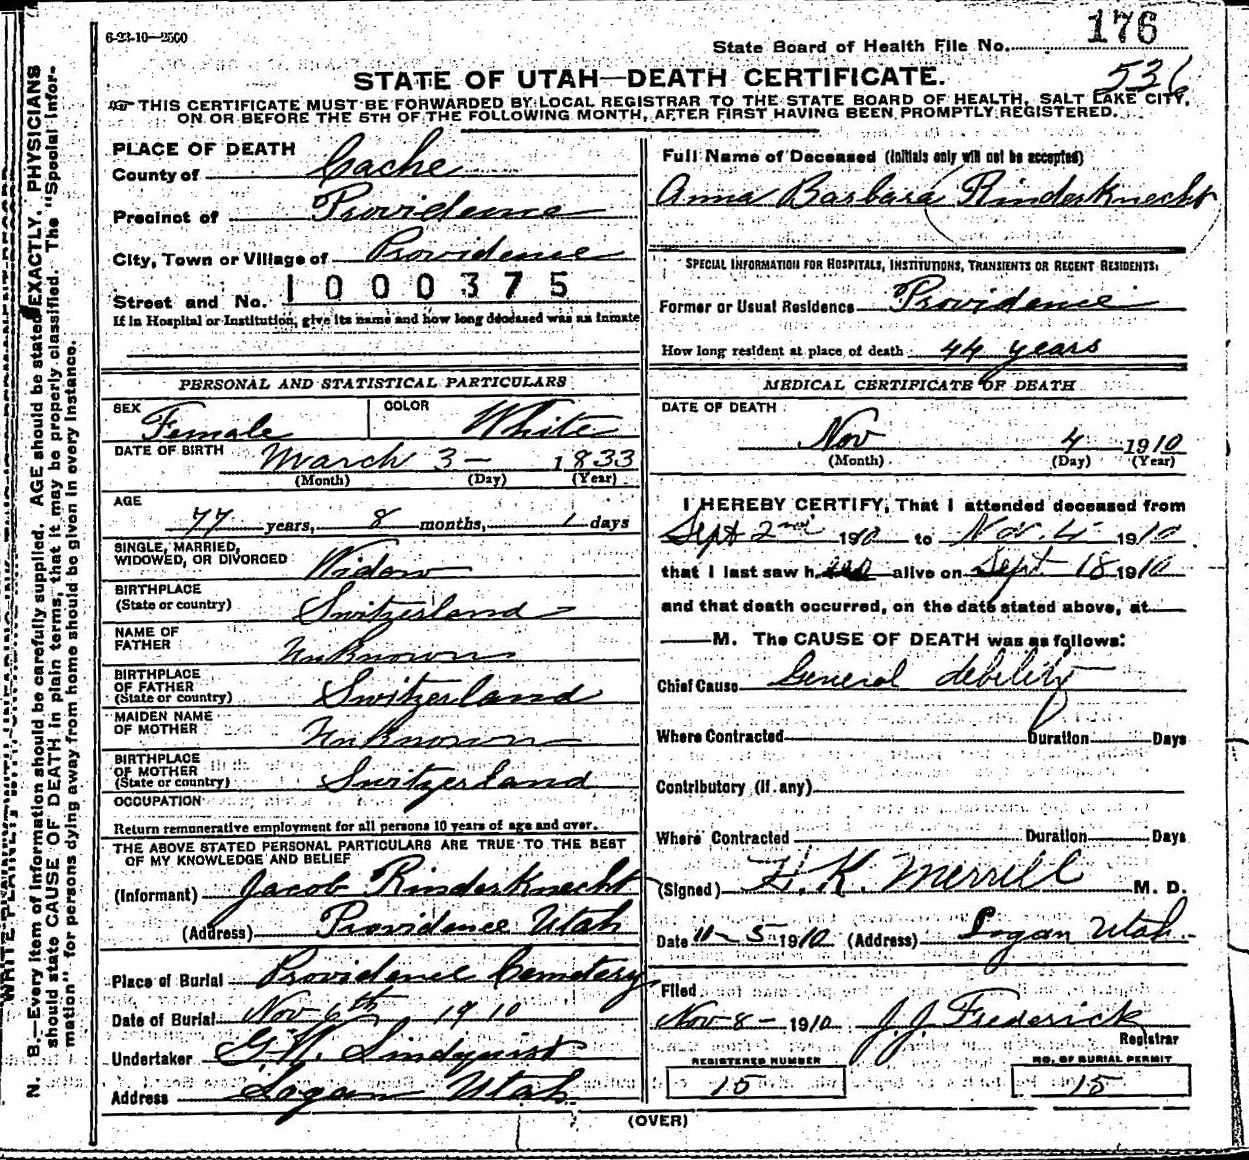 6-23-10—2500
State Board of Health File No. 176
536
STATE OF UTAH—DEATH CERTIFICATE.
THIS CERTIFICATE MUST BE FORWARDED BY LOCAL REGISTRAR TO THE STATE BOARD OF HEALTH, SALT LAKE CITY,
ON OR BEFORE THE 5TH OF THE FOLLOWING MONTH, AFTER FIRST HAVING BEEN PROMPTLY REGISTERED.
PLACE OF DEATH
County of Cache
Precinct of Providence
City, Town or Village of Providence
1000375
Street and No.
If in Hospital or Institution, give its name and how long deceased was an inmate
PERSONAL AND STATISTICAL PARTICULARS
SEX Female COLOR White
DATE OF BIRTH March 3 - 1833
(Month) (Day) (Year)
AGE
77 years, 8 months, 1 days
SINGLE, MARRIED,
WIDOWED, OR DIVORCED Widow
BIRTHPLACE
(State or country) Switzerland
NAME OF
FATHER UnKnown
BIRTHPLACE
OF FATHER
(State or country) Switzerland
MAIDEN NAME
OF MOTHER UnKnown
BIRTHPLACE
OF MOTHER
(State or country) Switzerland
OCCUPATION
Return remunerative employment for all persons 10 years of age and over.
THE ABOVE STATED PERSONAL PARTICULARS ARE TRUE TO THE BEST
OF MY KNOWLEDGE AND BELIEF
(Informant) Jacob RinderKnecht
(Address) Providence Utah
Place of Burial Providence Cemetery
Date of Burial Nov 6th 1910
Undertaker G.W. Lindquist
Address Logan Utah.
Full Name of Deceased (Initials only will not be accepted)
Anna Barbara RinderKnecht
SPECIAL INFORMATION FOR HOSPITALS, INSTITUTIONS, TRANSIENTS OR RECENT RESIDENTS:
Former or Usual Residence Providence
How long resident at place of death 44 years
MEDICAL CERTIFICATE OF DEATH
DATE OF DEATH
Nov 4 1910
(Month) (Day) (Year)
I HEREBY CERTIFY, That I attended deceased from
Sept 2nd 1910 to Nov. 4 1910
that I last saw h alive on Sept. 18 1910
and that death occurred, on the date stated above, at
M. The CAUSE OF DEATH was as follows:
Chief Cause General debility
Where Contracted Duration Days
Contributory (if any)
Where Contracted Duration Days
(Signed) H. K. Merrill M. D.
Date 11-5-1910 (Address) Logan Utah.
Filed
Nov 8 - 1910 J.J. Frederick
Registrar
REGISTERED NUMBER NO. OF BURIAL PERMIT
15 15
(OVER)
N. B.—Every item of information should be carefully supplied. AGE should be stated EXACTLY. PHYSICIANS
should state CAUSE OF DEATH in plain terms, that it may be properly classified. The "Special Infor-
mation" for persons dying away from home should be given in every instance.